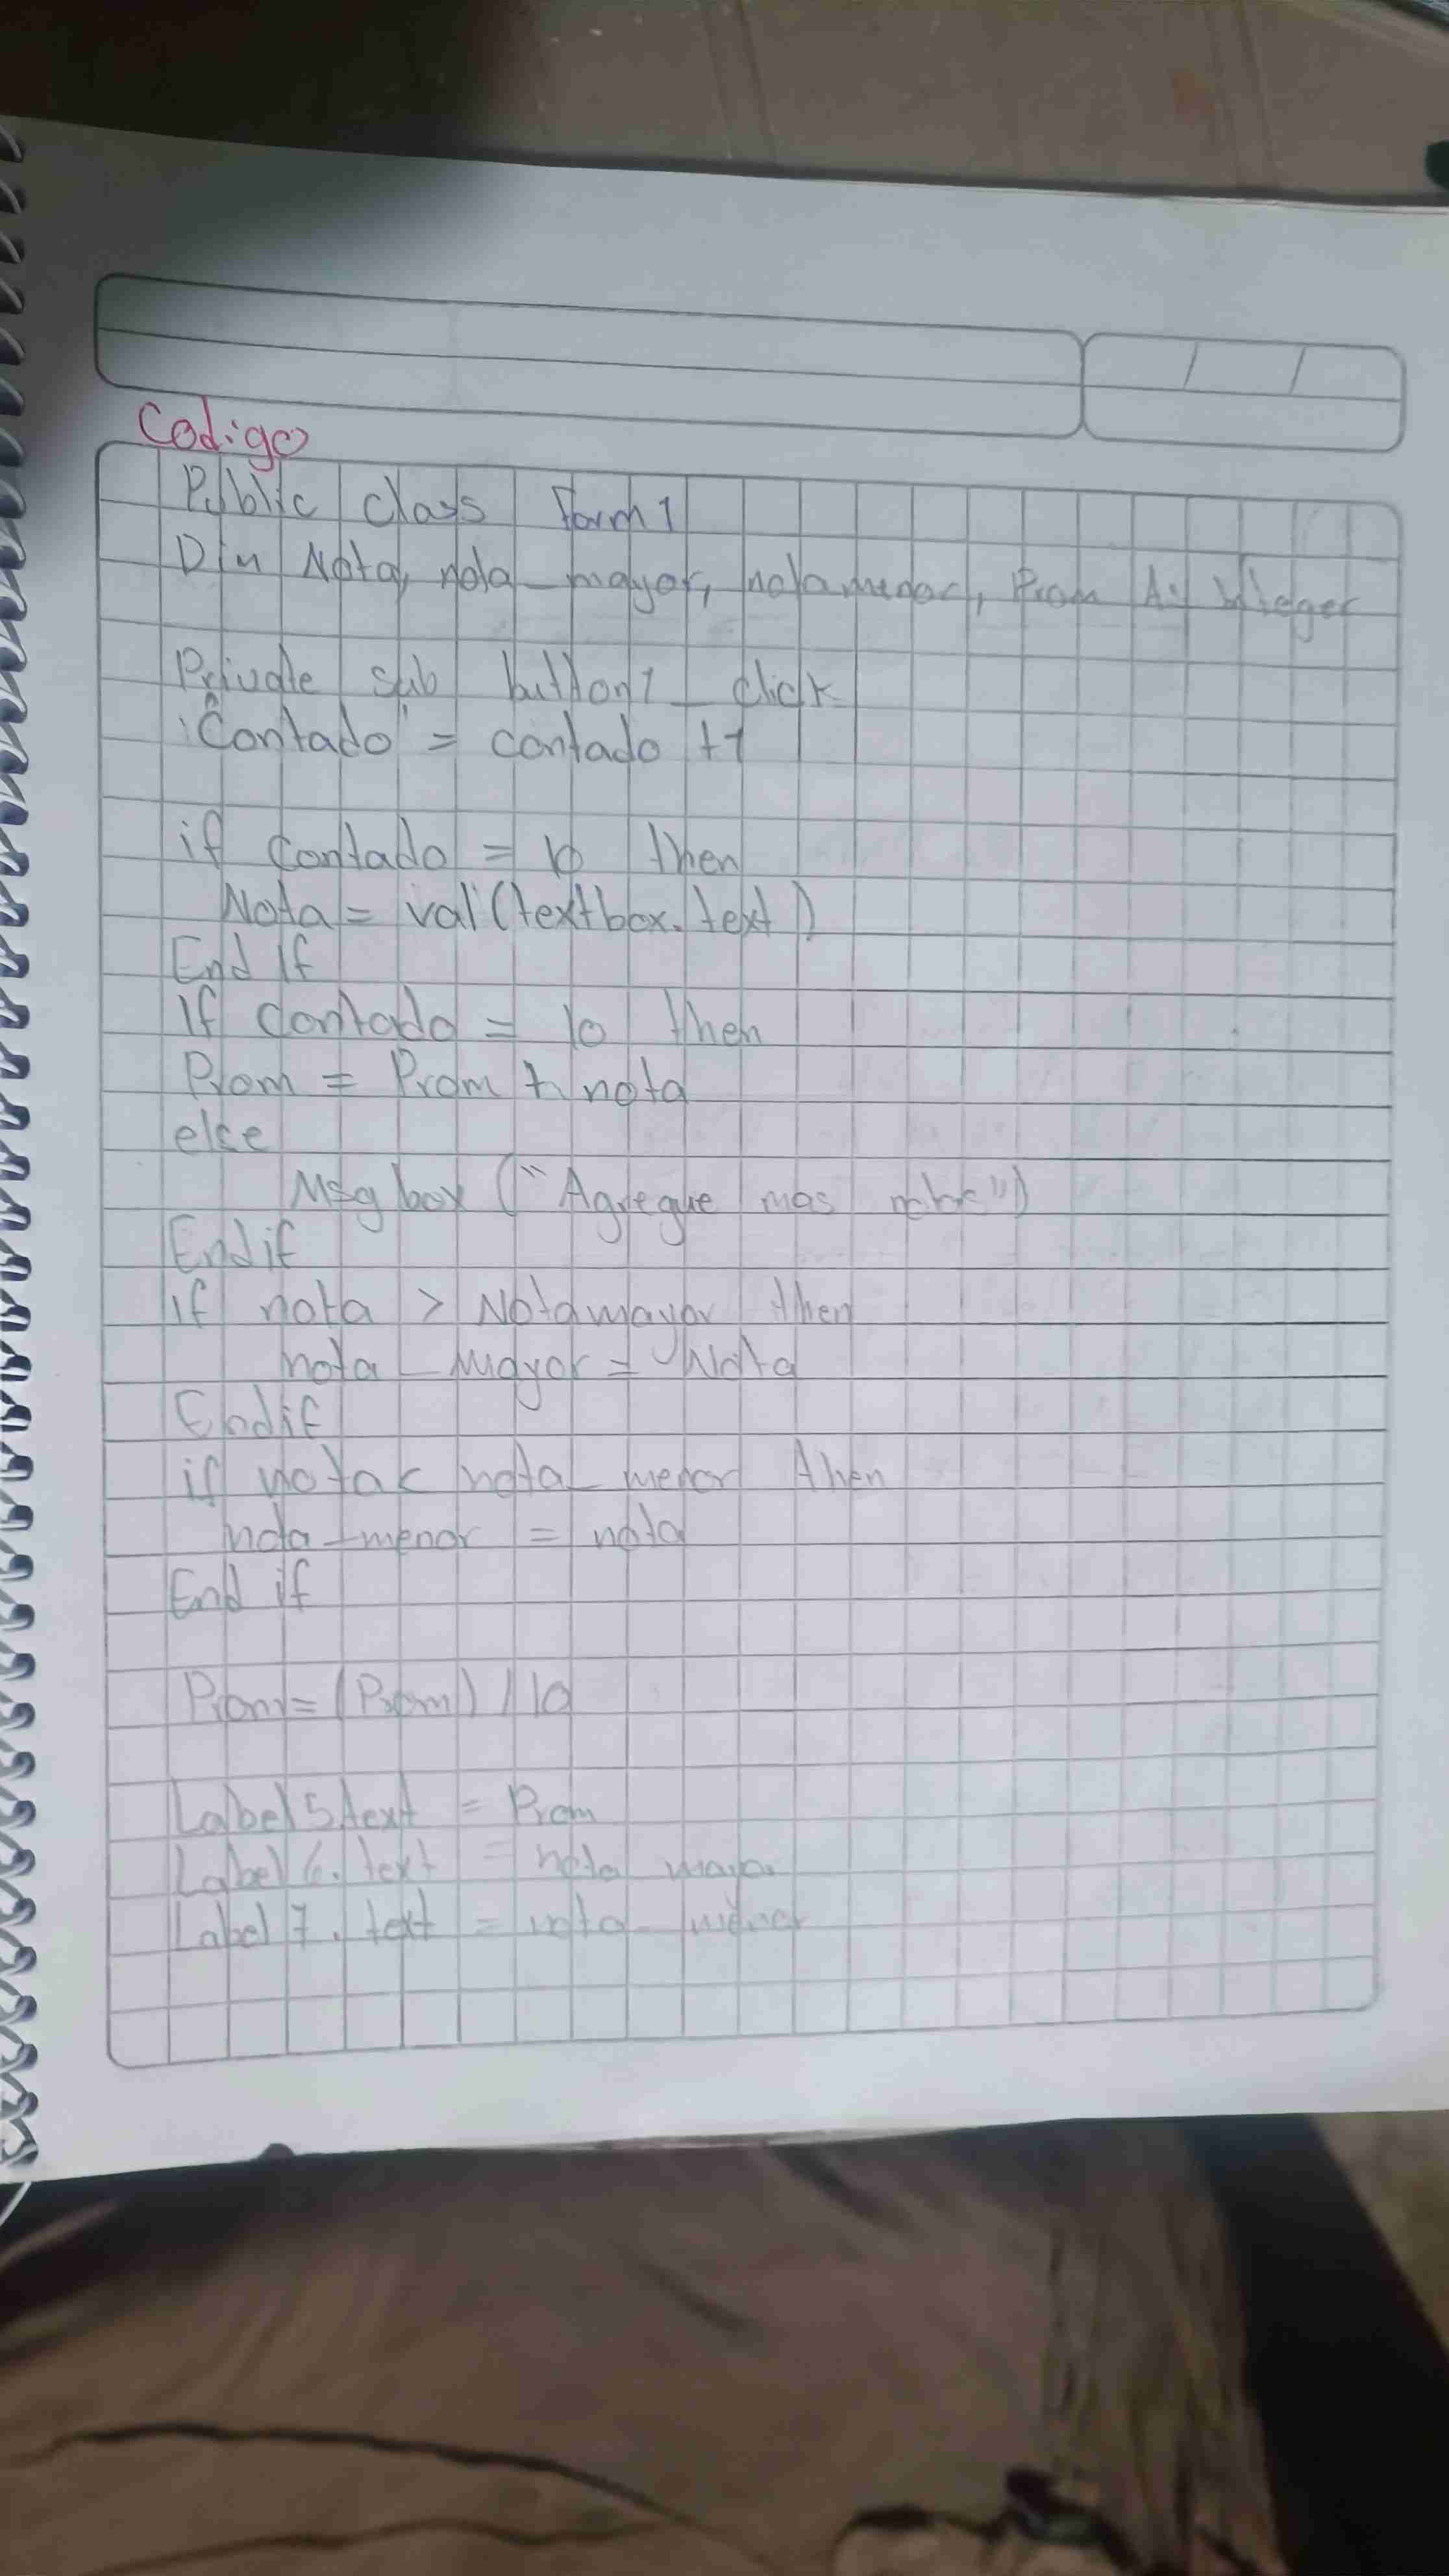 Codigo
Public class Form 1
Dim Nota, nota_mayor, notamenor, Prom As Integer
Private sub button1_click
Contado = contado +1
if contado = 10 then
Nota = val(textbox.text)
End If
If contado = 10 then
Prom = Prom + nota
else
Msg box ("Agregue mas")
End if
if nota > Notamayor then
nota_Mayor = Nota
Endif
if nota < nota_menor then
nota_menor = nota
End if
Prom = (Prom) / 10
Label5.text = Prom
Label 6. text = nota mayor
Label 7. text = nota_menor